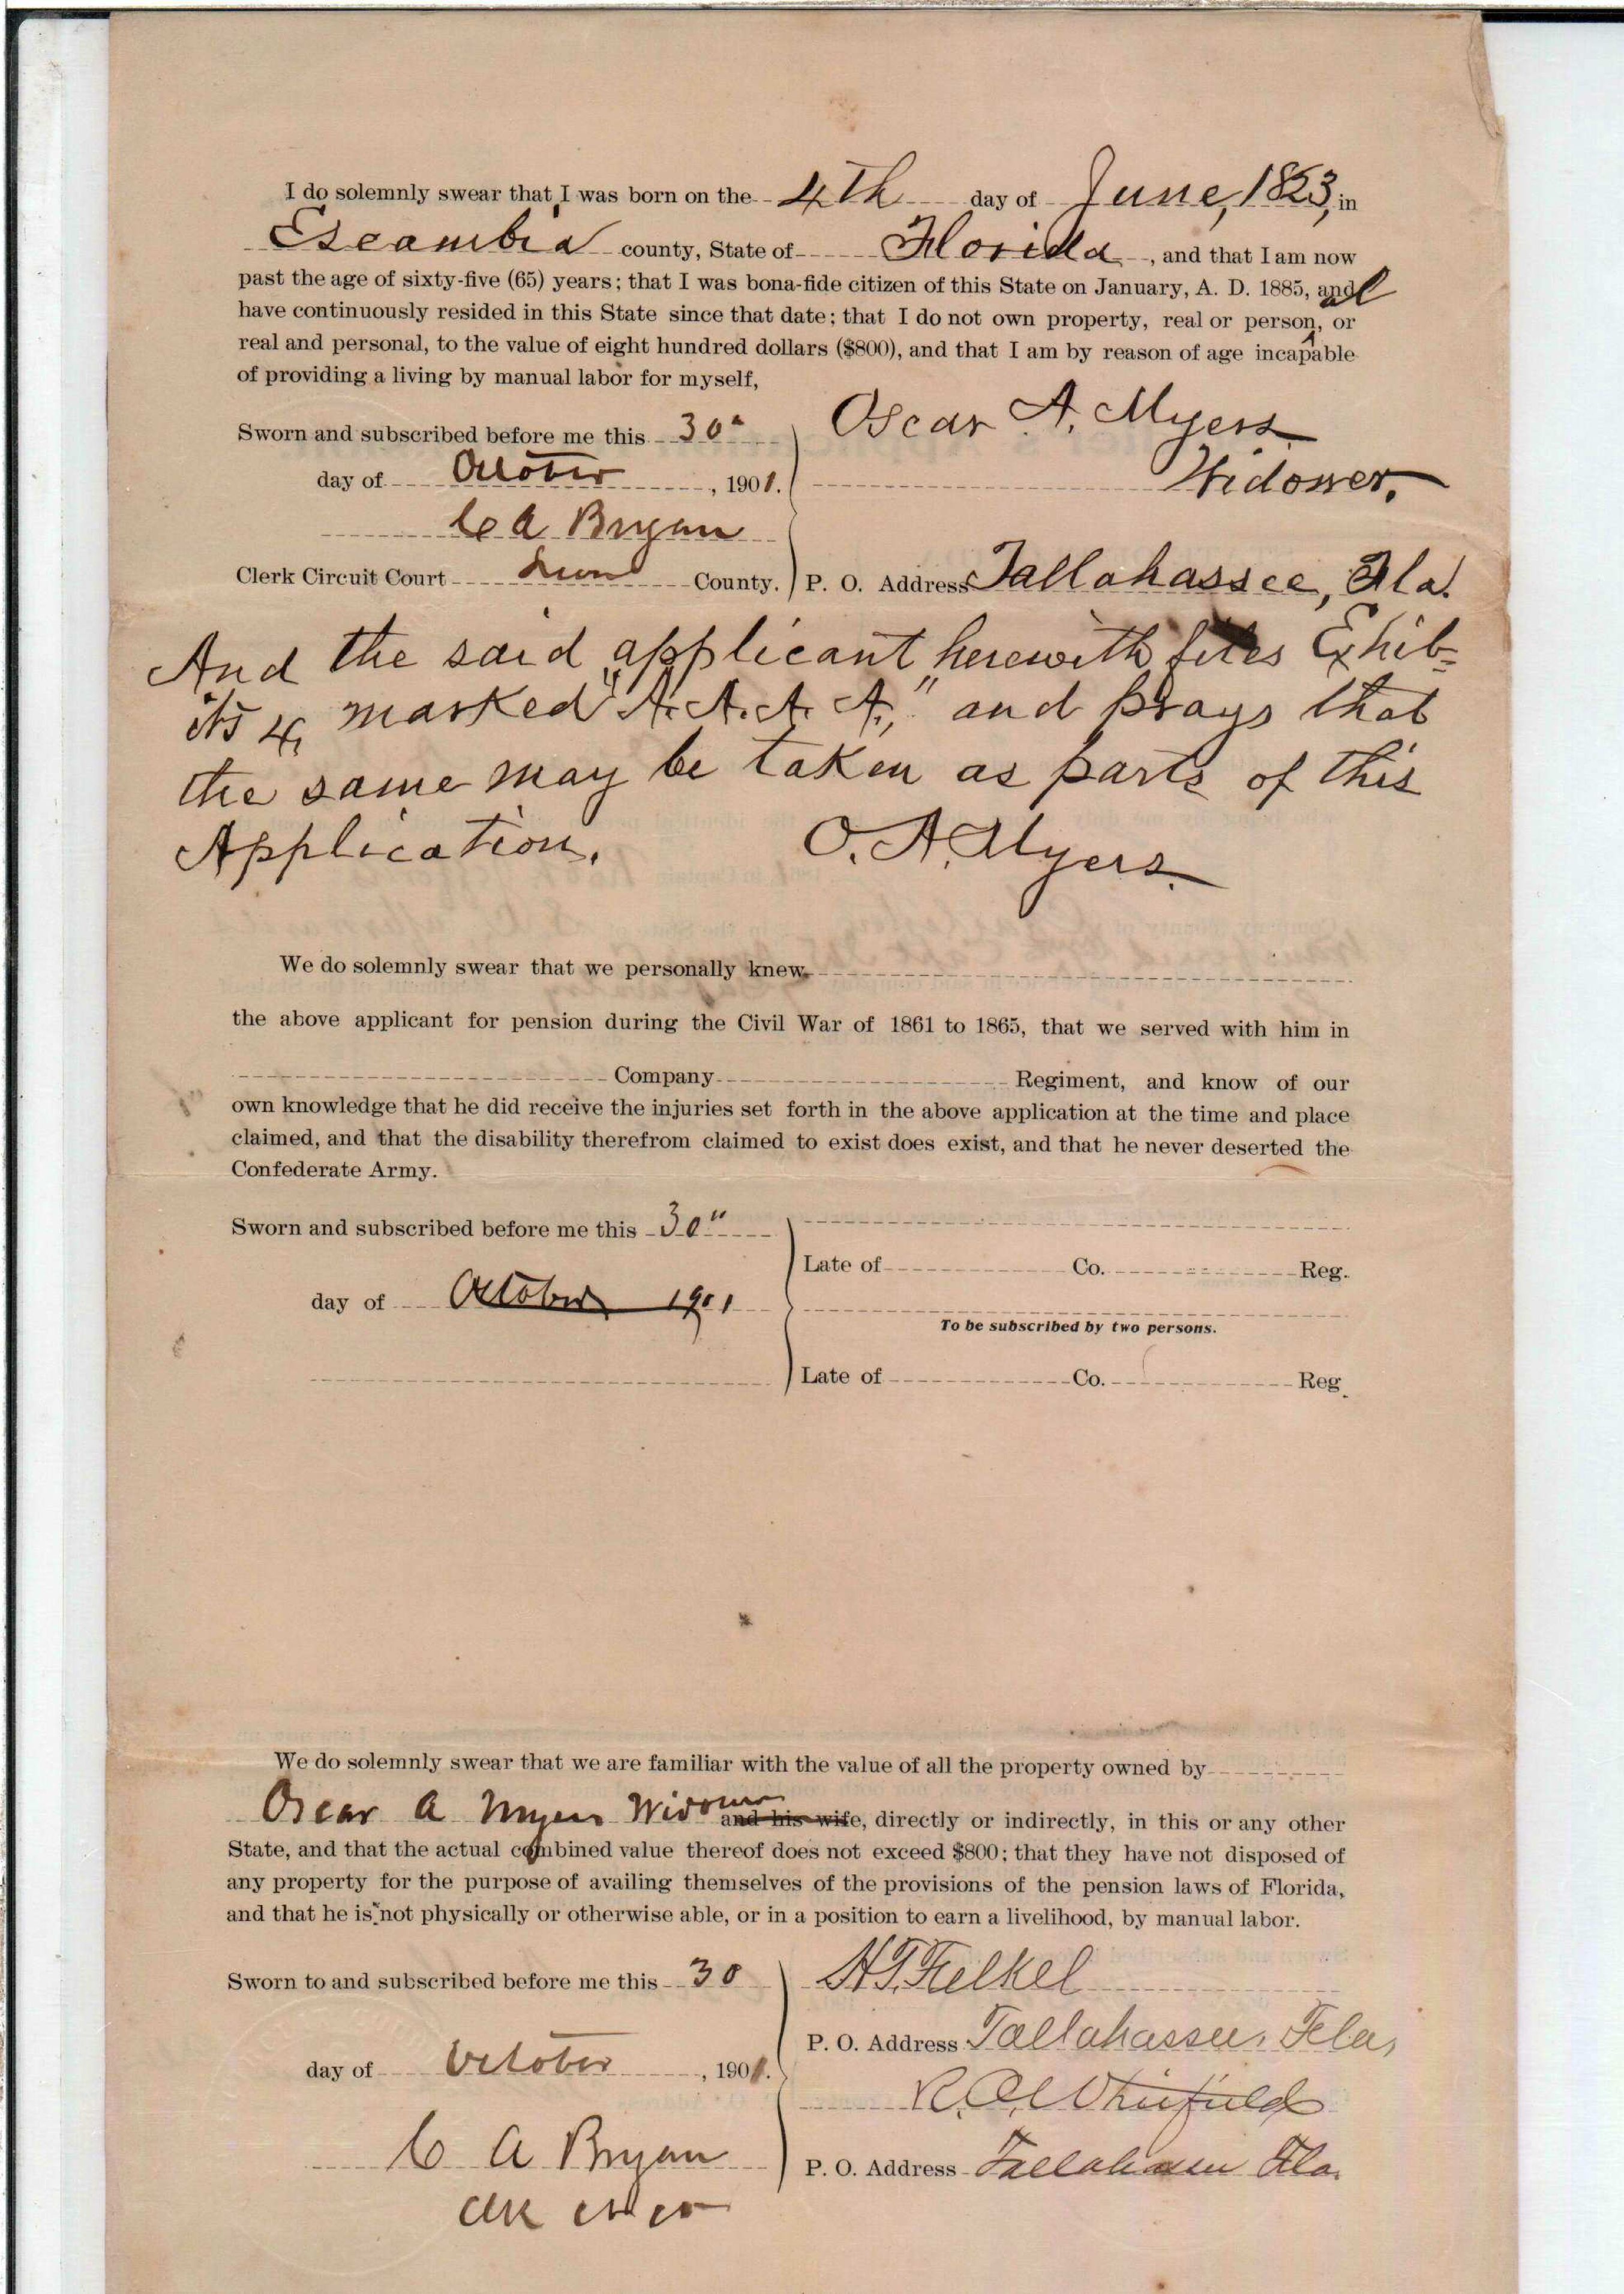 I do solemnly swear that I was born on the 4th day of June, 1823, in
Escambia county, State of Florida, and that I am now
past the age of sixty-five (65) years; that I was bona-fide citizen of this State on January, A. D. 1885, and
have continuously resided in this State since that date; that I do not own property, real or person, or
real and personal, to the value of eight hundred dollars ($800), and that I am by reason of age incapable
of providing a living by manual labor for myself,
Sworn and subscribed before me this 30" Oscar A. Myers
day of October, 1901. Widower.
C A Bryan
Clerk Circuit Court Leon County. P. O. Address Tallahassee, Fla.
And the said applicant herewith files Exhib=
its 4, marked "A. A. A. A.," and prays that
the same may be taken as parts of this
Application. O. A. Myers.
We do solemnly swear that we personally knew
the above applicant for pension during the Civil War of 1861 to 1865, that we served with him in
Company Regiment, and know of our
own knowledge that he did receive the injuries set forth in the above application at the time and place
claimed, and that the disability therefrom claimed to exist does exist, and that he never deserted the
Confederate Army.
Sworn and subscribed before me this 30"
Late of Co. Reg.
day of October 1901
To be subscribed by two persons.
Late of Co. Reg.
We do solemnly swear that we are familiar with the value of all the property owned by
Oscar A Myers Widower and his wife, directly or indirectly, in this or any other
State, and that the actual combined value thereof does not exceed $800; that they have not disposed of
any property for the purpose of availing themselves of the provisions of the pension laws of Florida,
and that he is not physically or otherwise able, or in a position to earn a livelihood, by manual labor.
Sworn to and subscribed before me this 30 H. T. Felkel
P. O. Address Tallahassee, Fla,
day of October, 1901.
R. A. Whitfield
C A Bryan
P. O. Address Tallahassee Fla.
Clk